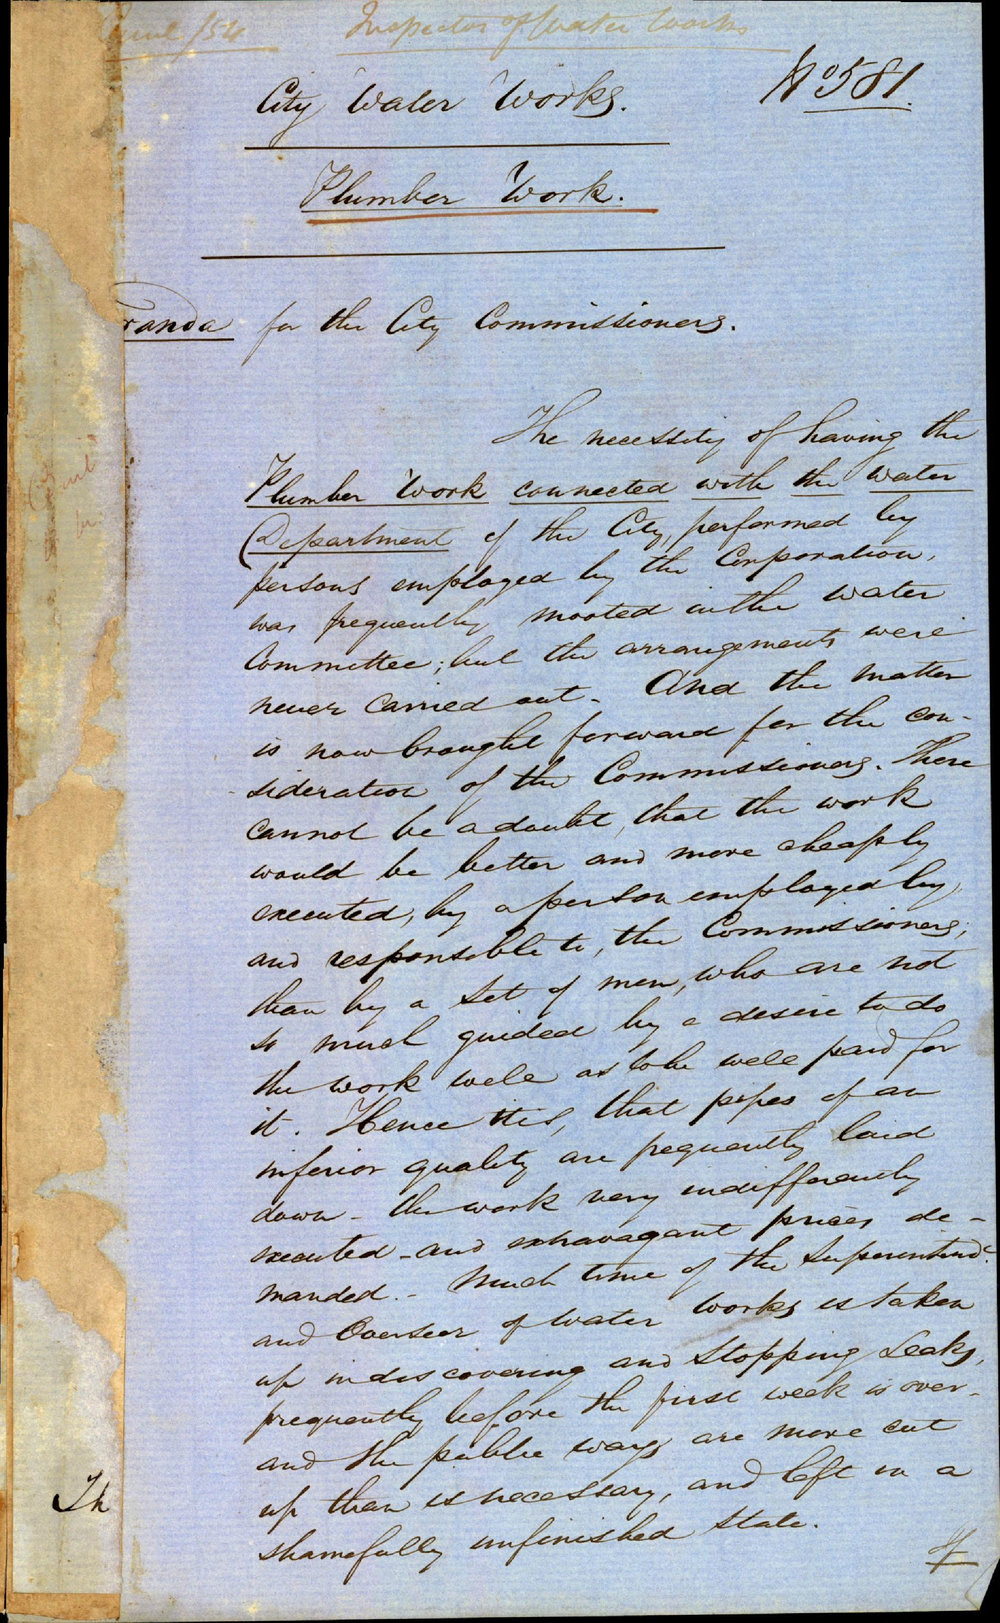 Inspector of Water Works
No 581.
City Water Works.
Plumber Work.
randa for the City Commissioners.
The necessity of having the
Plumber Work connected with the Water
Department of the City, performed by
persons employed by the Corporation,
was frequently mooted in the Water
Committee; but the arrangements were
never carried out - And the matter
is now brought forward for the con-
sideration of the Commissioners. There
cannot be a doubt, that the work
would be better and more cheaply
executed, by a person employed by,
and responsible to, the Commissioners,
than by a set of men, who are not
so much guided by a desire to do
the work well as to be well paid for
it. Hence it is, that pipes of an
inferior quality are frequently laid
down - the work very indifferently
executed - and extravagant prices de-
manded. - Much time of the Superintendt
and Overseer of Water Works is taken
up in discovering and stopping Leaks,
frequently before the first week is over -
and the public ways are more cut
up than is necessary, and left in a
shamefully unfinished state.
Th